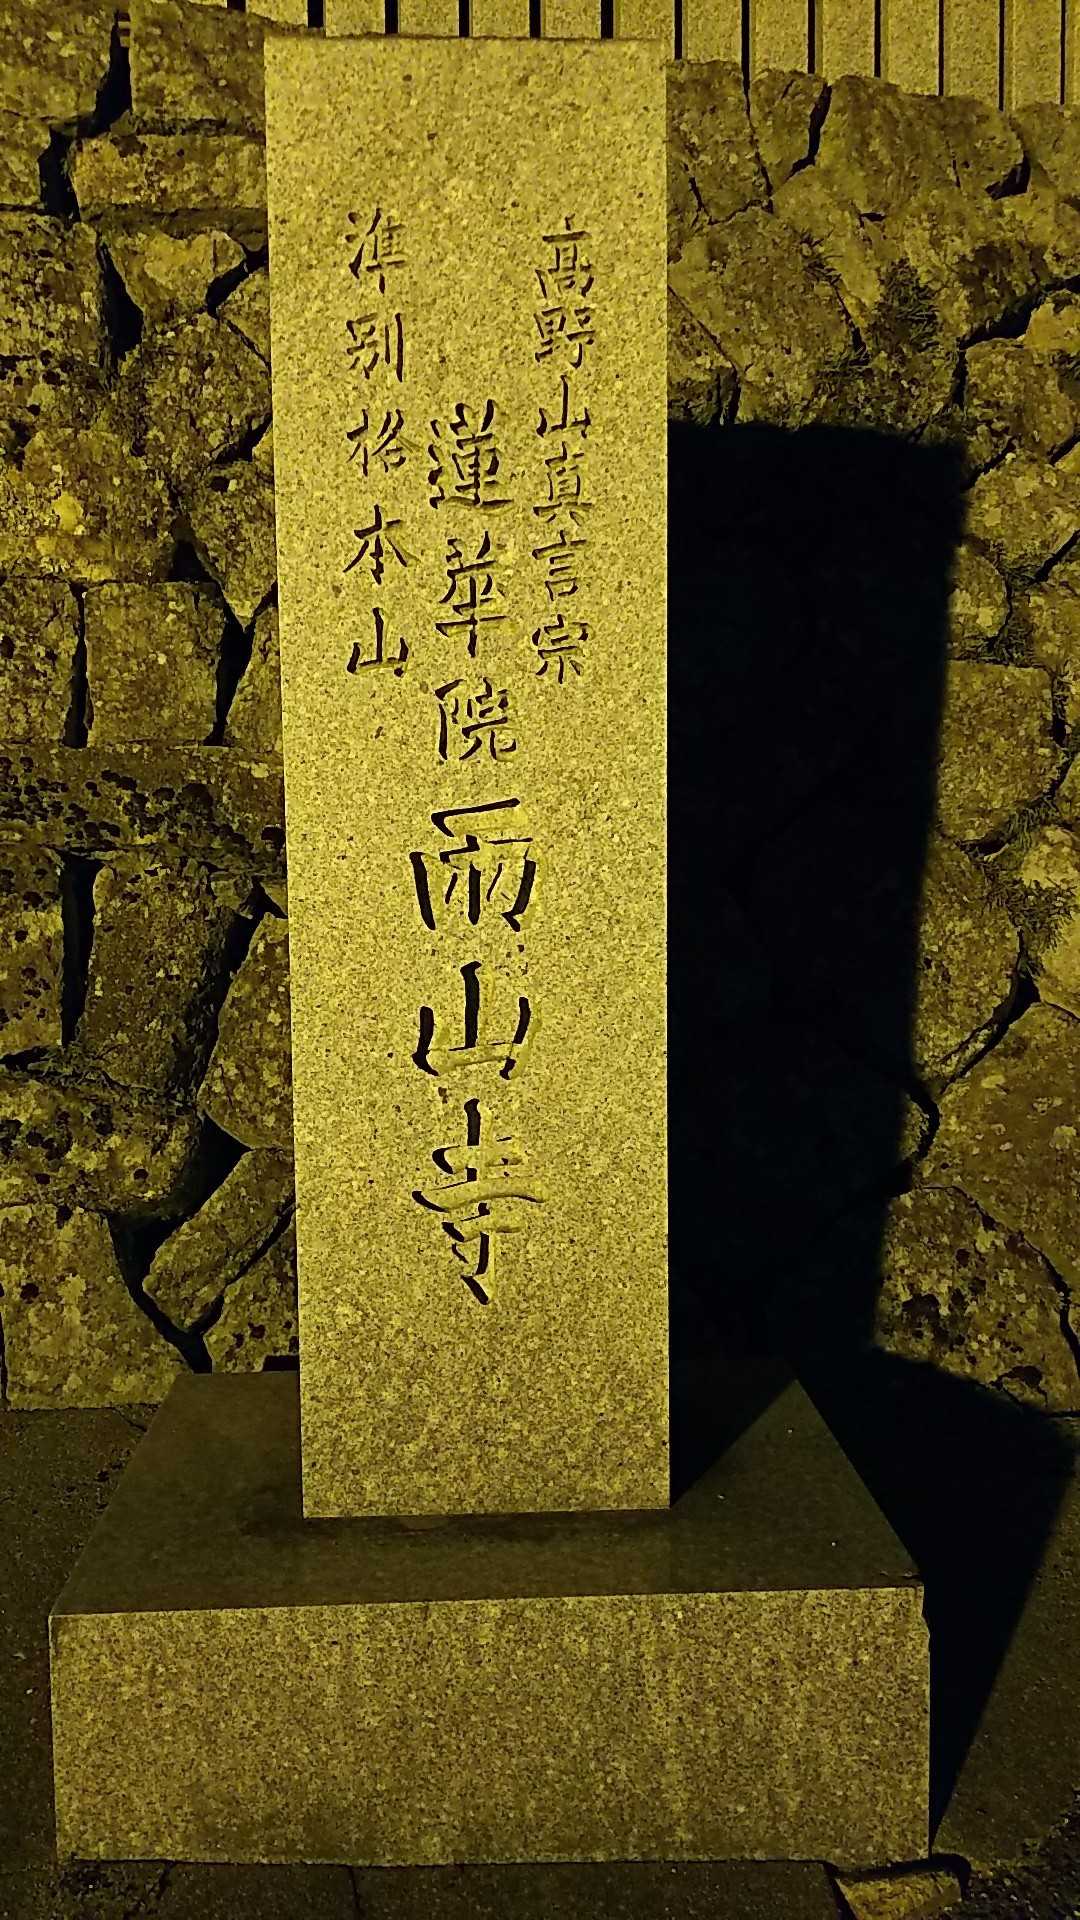 高野山真言宗
蓮華院雨山寺
準別格本山